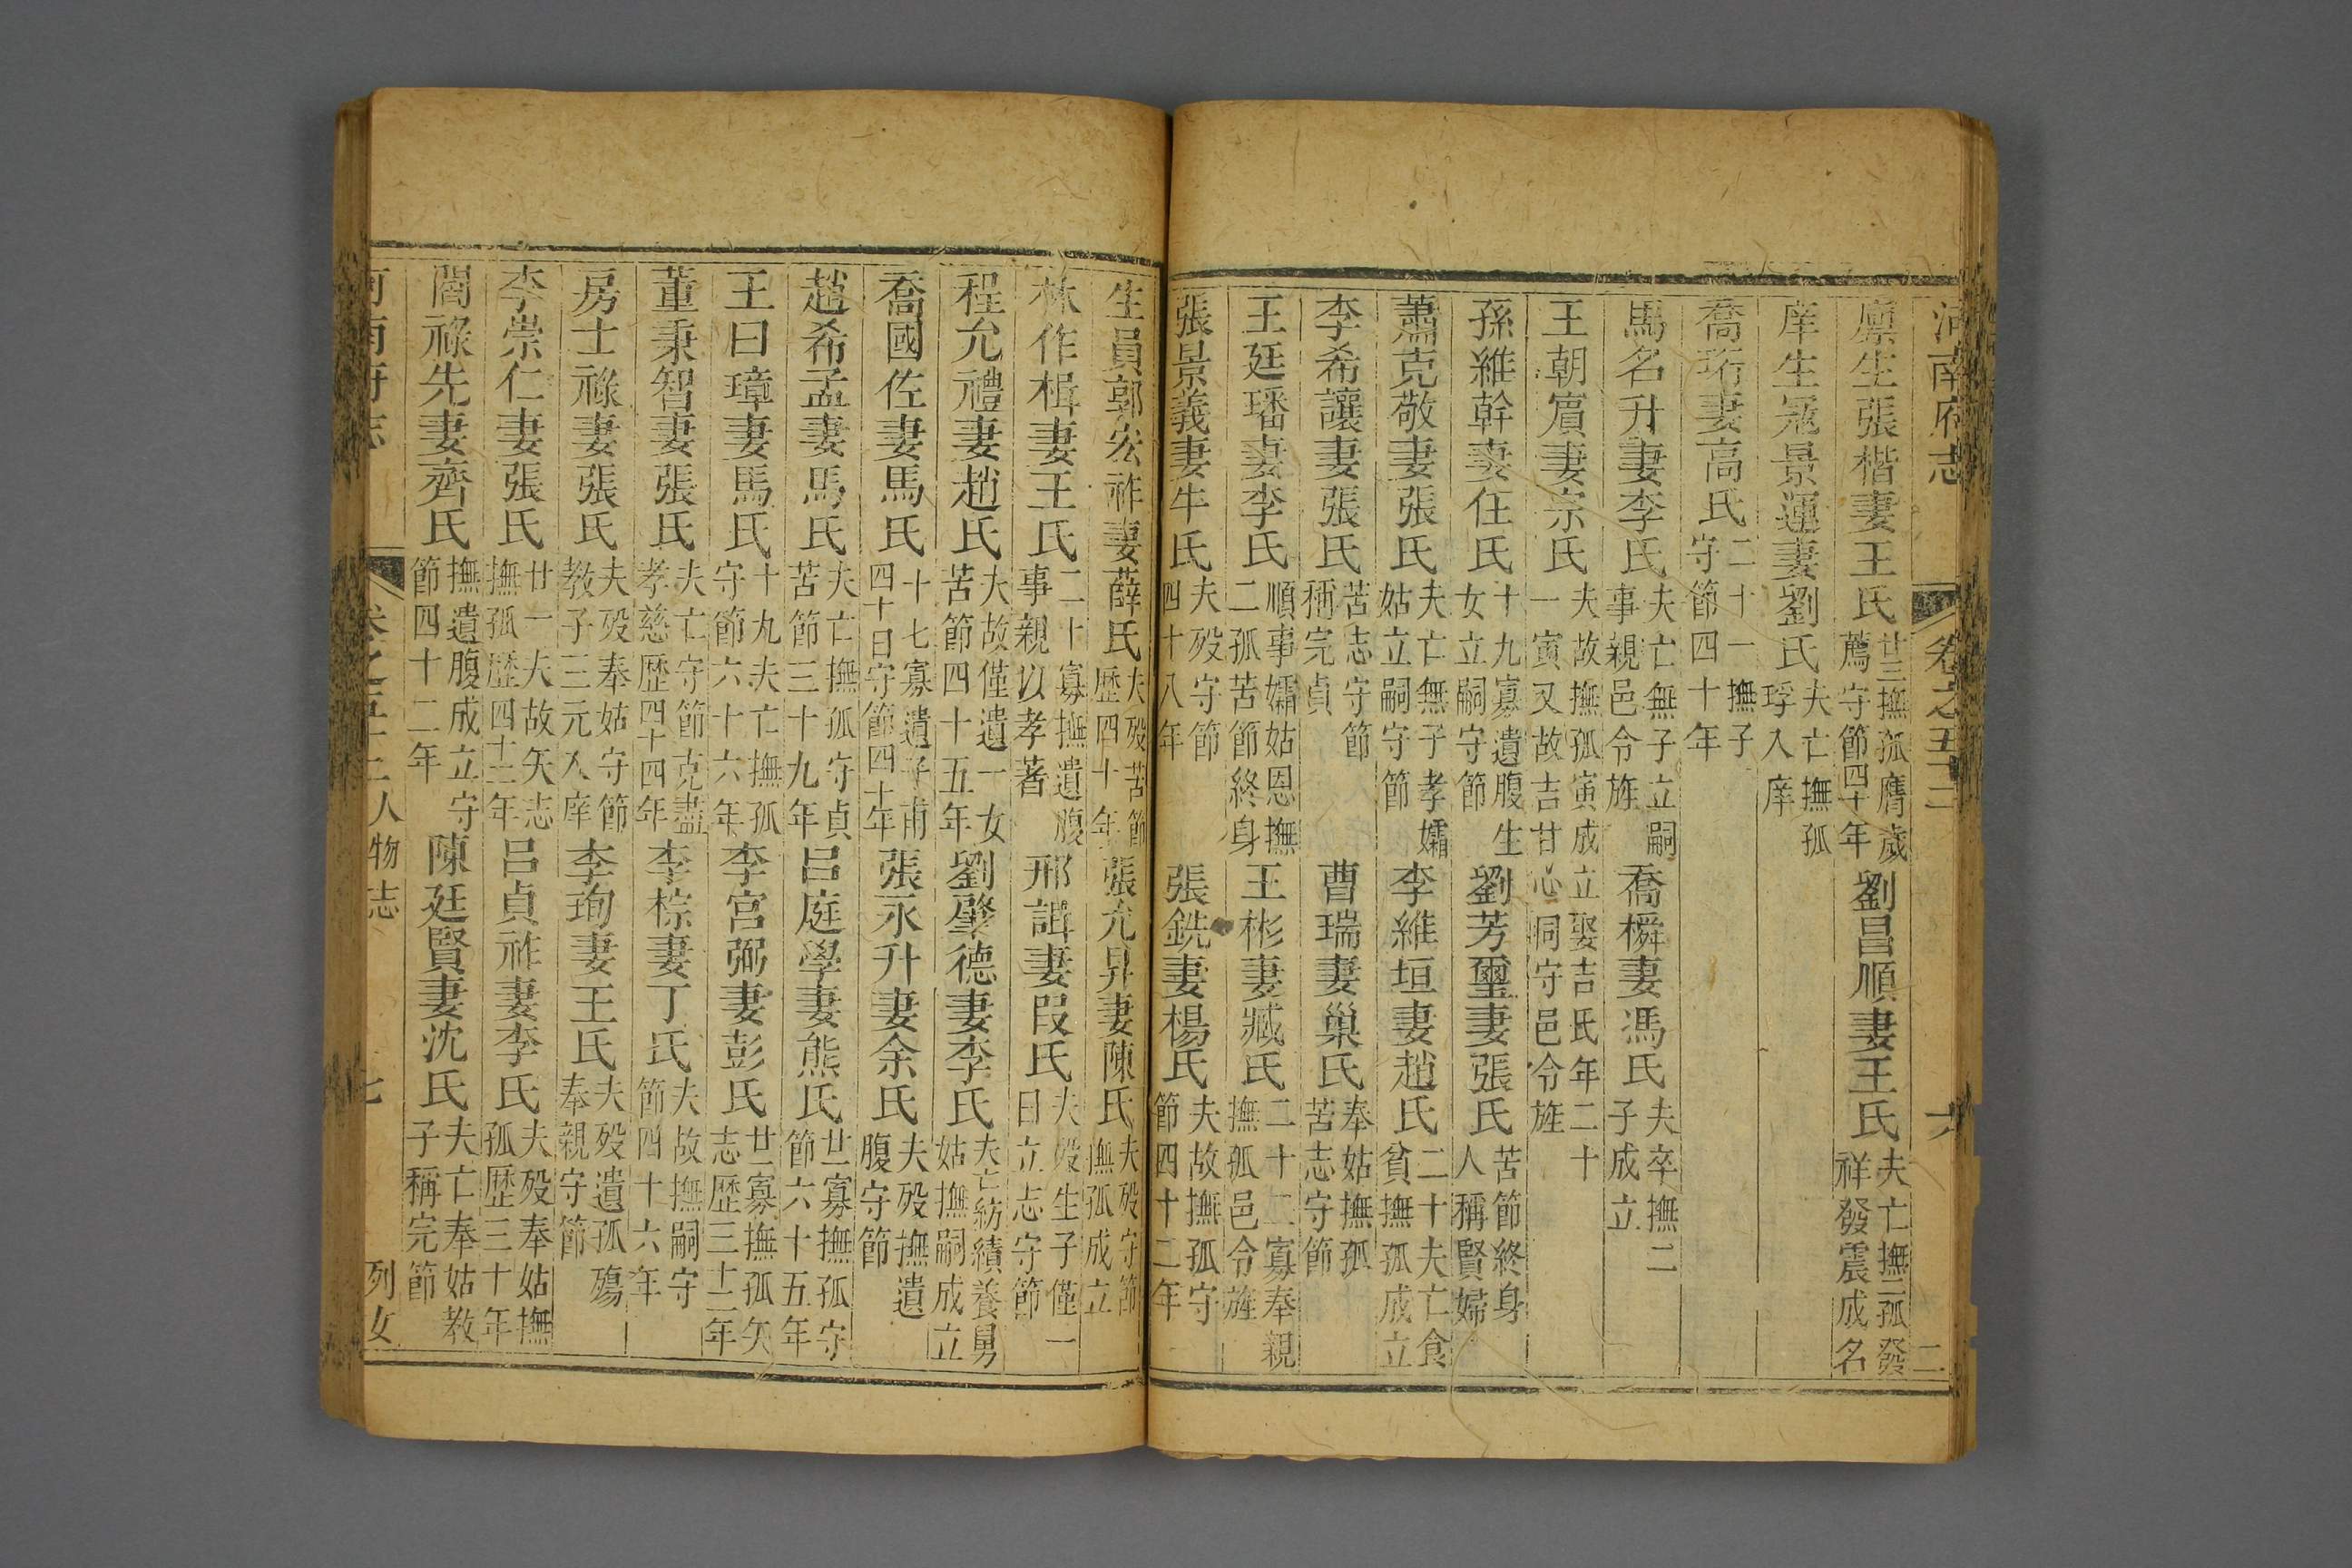 河南府志
卷之五十二
六
二
廩生張楷妻王氏 廿三撫孤膺歲薦守節四十年 劉昌順妻王氏 夫亡撫二孤發祥發震成名
庠生冦景運妻劉氏 夫亡撫孤琈入庠
喬珩妻高氏 二十一撫子守節四十年
馬名升妻李氏 夫亡無子立嗣事親邑令旌 喬橓妻馮氏 夫卒撫二子成立
王朝賔妻宗氏 夫故撫孤寅成立娶吉氏年二十一寅又故吉甘心同守邑令旌
孫維幹妻任氏 十九寡遺腹生女立嗣守節 劉芳璽妻張氏 苦節終身人稱賢婦
蕭克敬妻張氏 夫亡無子孝孀姑立嗣守節 李維垣妻趙氏 二十夫亡食貧撫孤成立
李希讓妻張氏 苦志守節稱完貞 曹瑞妻巢氏 奉姑撫孤苦志守節
王廷璠妻李氏 順事孀姑恩撫二孤苦節終身 王彬妻臧氏 二十二寡奉親撫孤邑令旌
張景義妻牛氏 夫歿守節四十八年 張銑妻楊氏 夫故撫孤守節四十二年
生員郭宏祚妻薛氏 夫歿苦節歷四十年 張允昇妻陳氏 夫歿守節撫孤成立
林作楫妻王氏 二十寡撫遺腹事親以孝著 邢諿妻段氏 夫歿生子僅一日立志守節
程允禮妻趙氏 夫故僅遺一女苦節四十五年 劉肇德妻李氏 夫亡紡績養舅姑撫嗣成立
喬國佐妻馬氏 十七寡遺子甫四十日守節四十年 張永升妻余氏 夫歿撫遺腹守節
趙希孟妻馬氏 夫亡撫孤守貞苦節三十九年 呂庭學妻熊氏 廿一寡撫孤守節六十五年
王曰璋妻馬氏 十九夫亡撫孤守節六十六年 李宮弼妻彭氏 廿一寡撫孤矢志歷三十二年
董秉智妻張氏 夫亡守節克盡孝慈歷四十四年 李棕妻丁氏 夫故撫嗣守節四十六年
房士祿妻張氏 夫歿奉姑守節教子三元入庠 李珣妻王氏 夫歿遺孤殤奉親守節
李崇仁妻張氏 廿一夫故矢志撫孤歷四十二年 呂貞祚妻李氏 夫歿奉姑撫孤歷三十年
閻祿先妻齊氏 撫遺腹成立守節四十二年 陳廷賢妻沈氏 夫亡奉姑教子稱完節
河南府志
卷之五十二人物志
七
列女